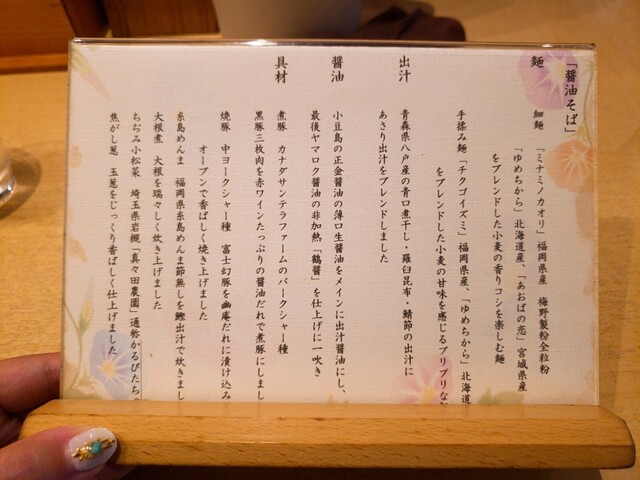 「醤油そば」
麺
細麺　「ミナミノカオリ」福岡県産　梅野製粉全粒粉
「ゆめちから」北海道産、「あおばの恋」宮城県産
をブレンドした小麦の香りコシを楽しむ麺
手揉み麺「チクゴイズミ」福岡県産、「ゆめちから」北海道
をブレンドした小麦の甘味を感じるプリプリな
出汁
青森県八戸産の青口煮干し・羅臼昆布・鯖節の出汁に
あさり出汁をブレンドしました
醤油
小豆島の正金醤油の薄口生醤油をメインに出汁醤油にし、
最後ヤマロク醤油の非加熱「鶴醤」を仕上げに一吹き
具材
煮豚　カナダサンテラファームのバークシャー種
黒豚三枚肉を赤ワインたっぷりの醤油だれで煮豚にしまし
焼豚　中ヨークシャー種　富士幻豚を幽庵だれに漬け込み
オーブンで香ばしく焼き上げました
糸島めんま　福岡県糸島めんま節無しを鰹出汁で炊きまし
大根煮　大根を瑞々しく炊き上げました
ちぢみ小松菜　埼玉県岩槻「真々田農園」通称かるびたち
焦がし葱　玉葱をじっくり香ばしく仕上げました